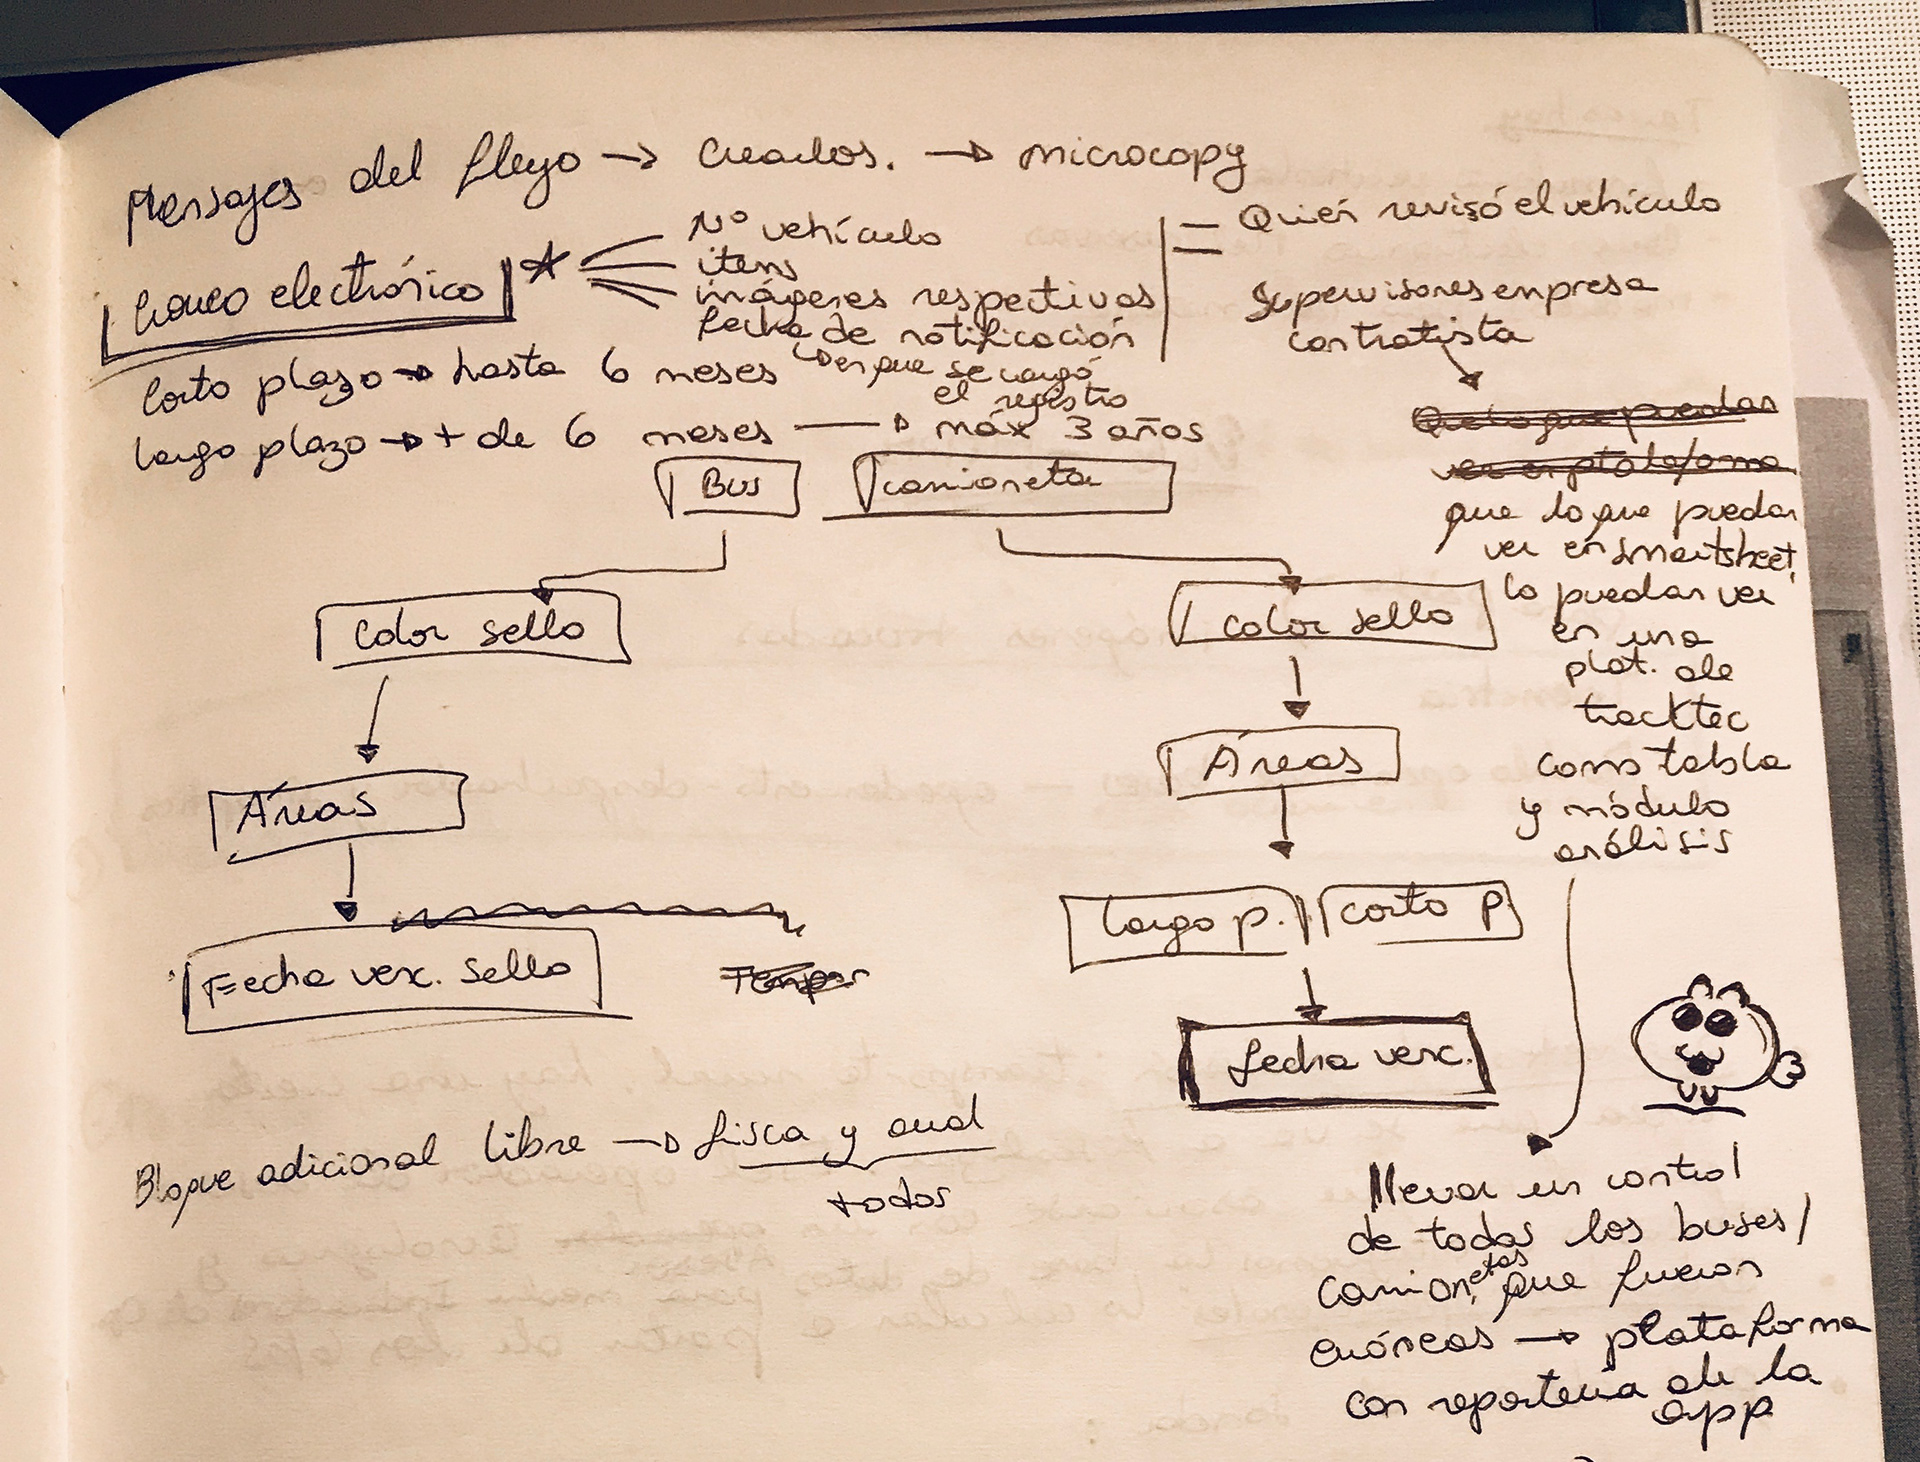 Mensajes del flujo → Creados. → microcopy
Correo electrónico *
Nº vehículo
items
imágenes respectivas
fecha de notificación
↳ en que se cargó
el registro
= Quien revisó el vehículo
Supervisores empresa
contratista
Corto plazo → hasta 6 meses
largo plazo → + de 6 meses → máx 3 años
Que lo que puedan
ver en plataforma
que lo que puedan
ver en smartsheet,
lo puedan ver
en una
plat. de
tracktec
como tabla
y módulo
análisis
Bus
Camioneta
Color sello
Color sello
Áreas
Áreas
Fecha venc. sello
largo p.
corto p.
fecha venc.
Bloque adicional libre →
todos
llevar un control
de todos los buses/
camionetas que fueron
erróneas → plataforma
con reportería de la
app